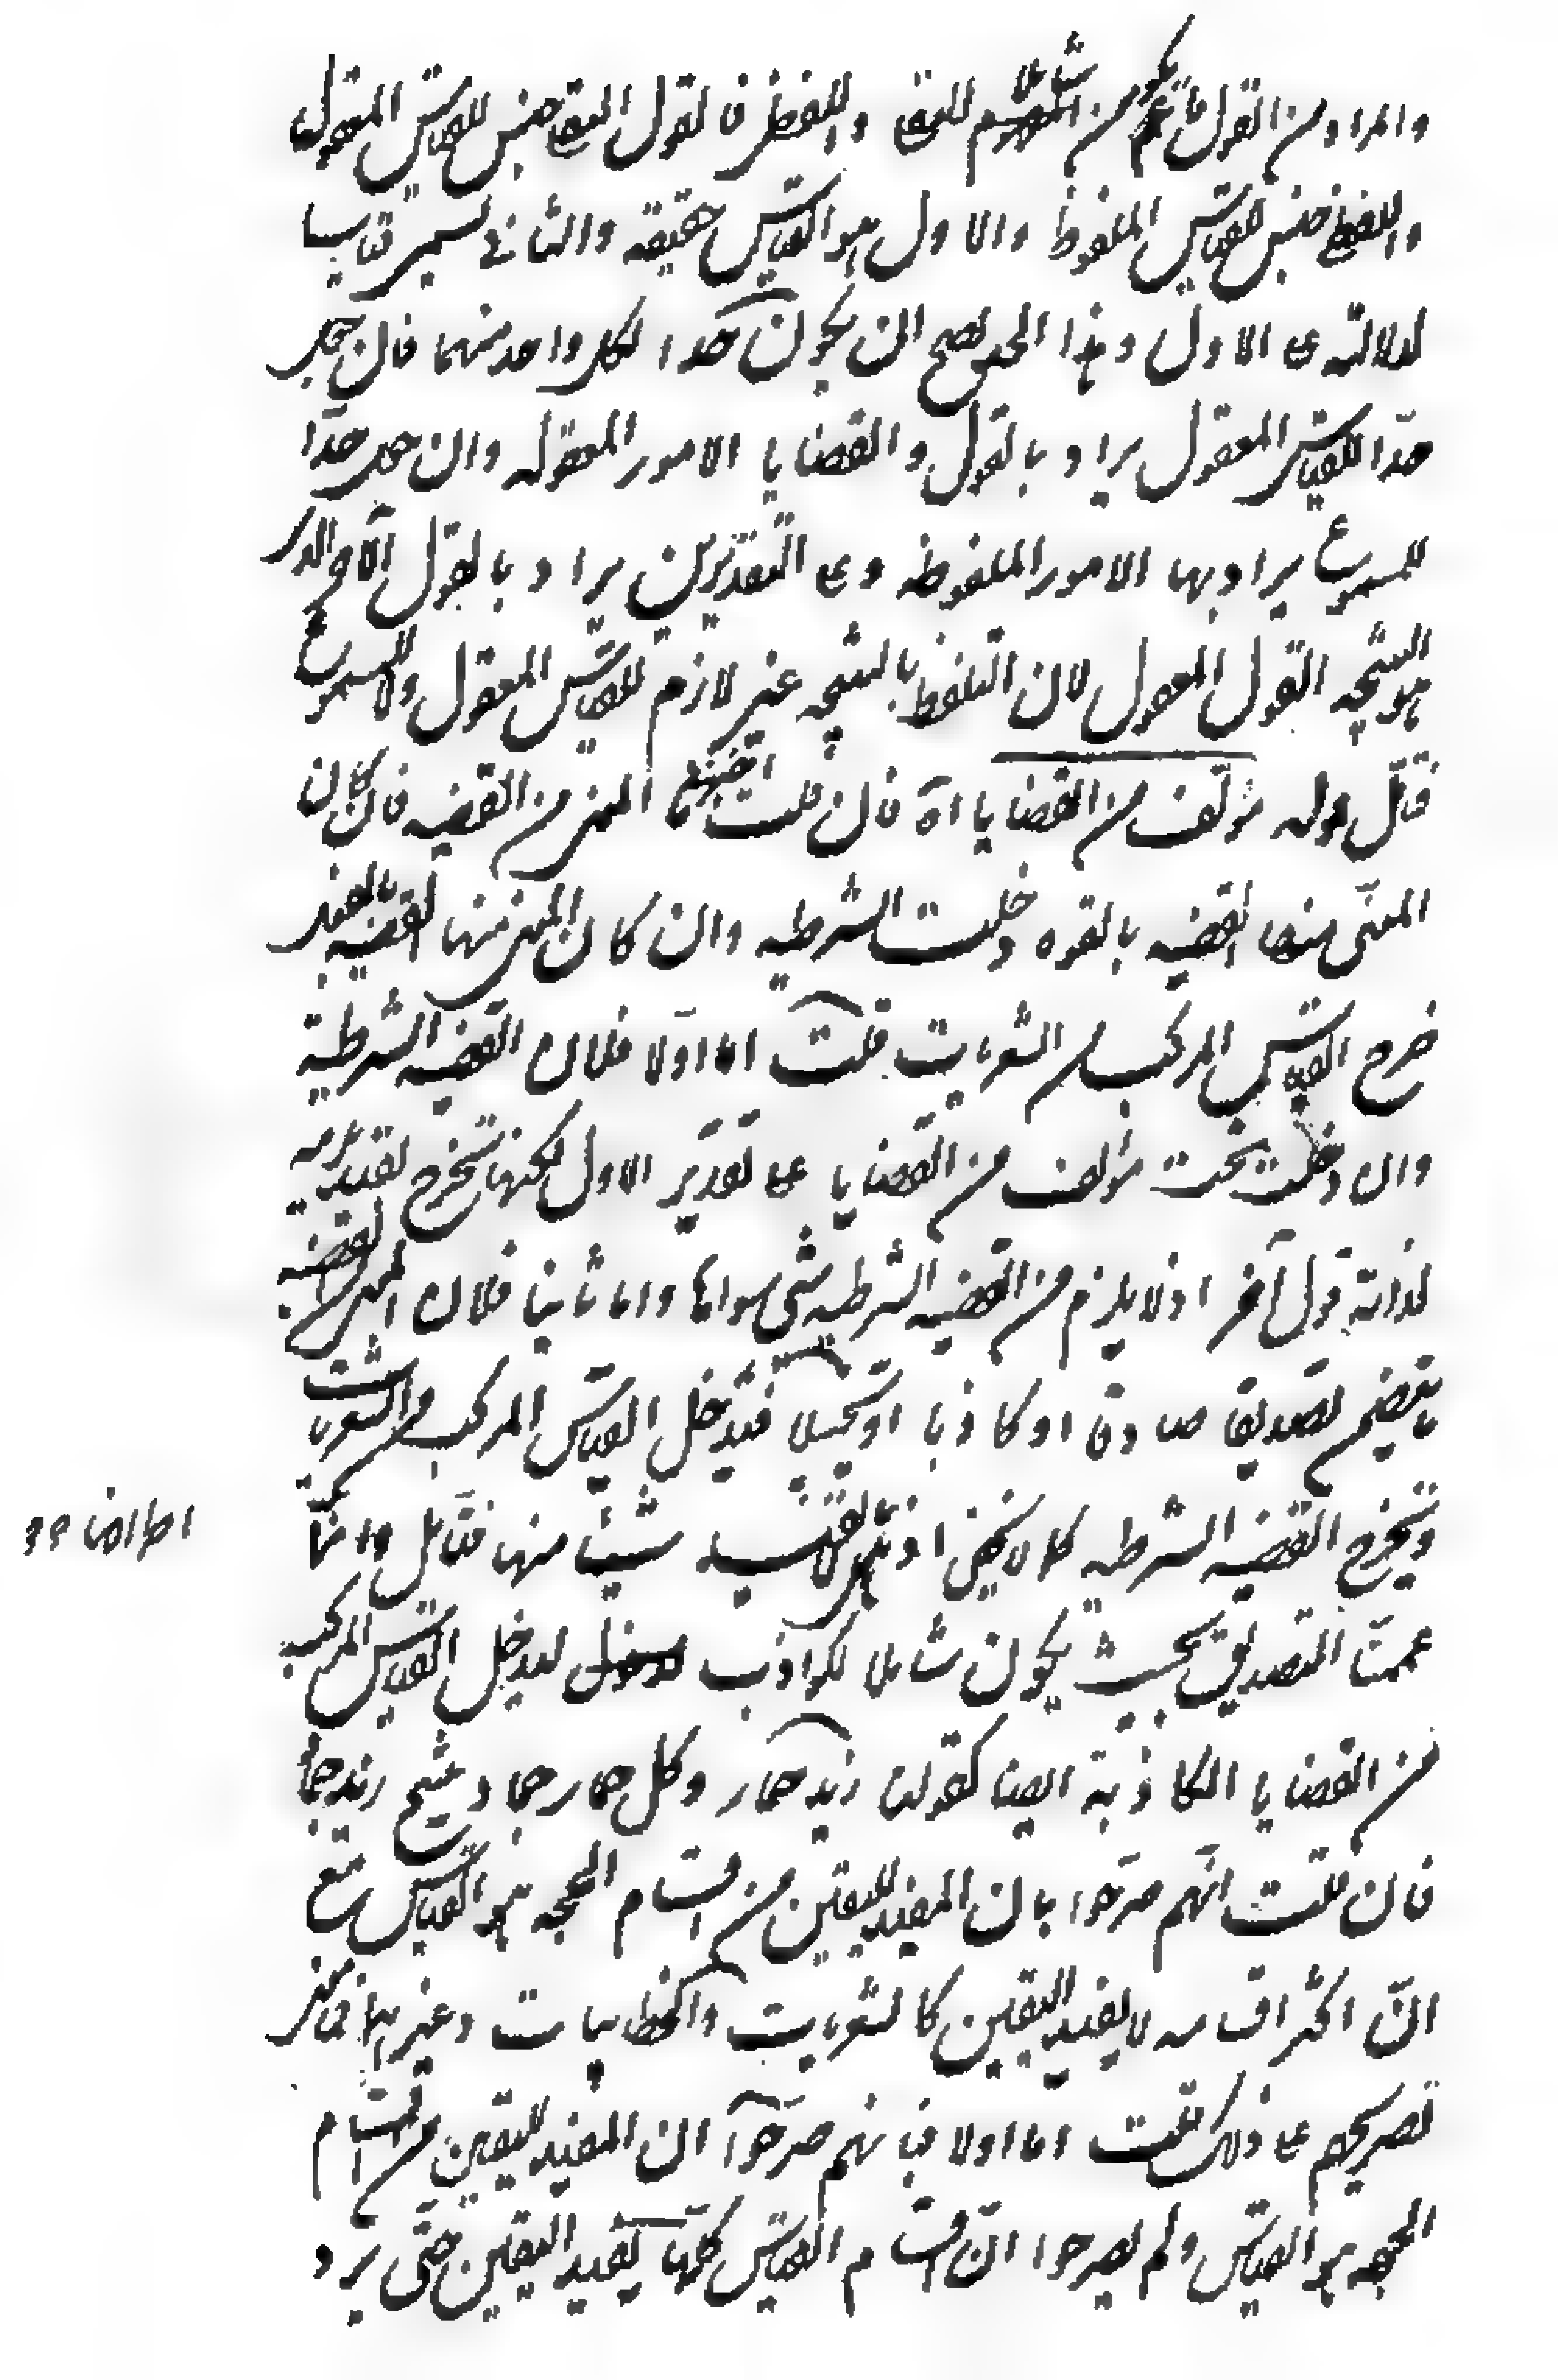 والمراد من القول ما يكون شاملا للمعقول والملفوظ فالقول المعقول جنس للقياس المعقول
والملفوظ جنس للقياس الملفوظ والاول هو القياس حقيقة والثاني يسمى قياسا
لدلالته على الاول وهذا الحد يصح ان يكون حدا لكل واحد منهما فان جعل
حدّا للقياس المعقول يراد بالقول والقضايا الامور المعقوله وان جعل حدّا
للمسموع يراد بها الامور الملفوظه وعلى التقديرين يراد بالقول الآخر الذى
هو النتيجه القول المعقول لان التلفظ بالنتيجه غير لازم للقياس المعقول ولا للمسموع
قال قوله مؤلف من القضايا اه فان قلت المعنى من القضيه فان كان
المعنّى منها القضيه بالقوه دخلت الشرطيه وان كان المعنى منها القضيه بالفعل
خرج القياس المركب من الشعريات قلت اما اولا فلان القضيه الشرطية
وان دخلت تحت مؤلف من القضايا على تقدير الاول لكنها تخرج بقيد يلزمه
لذاته قول آخر اذ لا يلزم من القضيه الشرطيه شئ سواها واما ثانيا فلان المعنى من القضيه
ما يتضمن تصديقا صادقا او كاذبا او تخييلا فيدخل القياس المركب من الشعريات
وتخرج القضيه الشرطيه كما لا يخفى اذ شيئا منها فتأمل وانما
عممنا التصديق بحيث يكون شاملا لكواذب ليدخل القياس المركب
من القضايا الكاذبة ايضا كقولنا زيد حمار وكل حمار جماد ينتج زيد جماد
فان قلت انهم صرّحوا بان المفيد لليقين من اقسام الحجه هو القياس مع
انّ اكثر اقسامه لا يفيد اليقين كالشعريات والخطابيات وغيرها فما معنى
تصريحهم على ذلك قلت اما اولا فبانهم صرّحوا ان المفيد لليقين من اقسام
الحجه هو القياس ولم يصرحوا انّ اقسام القياس كلها يفيد اليقين حتى يرد